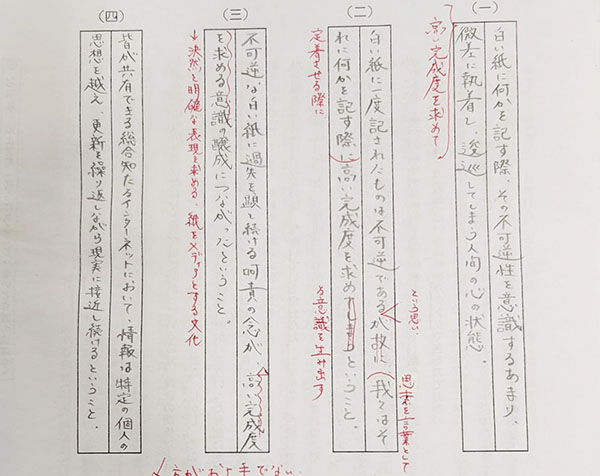 (一)
白い紙に何かを記す際、その不可逆性を意識するあまり、
微差に執着し、逡巡してしまう人間の心の状態。
高い完成度を求めて
(二)
白い紙に一度記されたものは不可逆であるが故に、我々はそ
れに何かを記す際に高い完成度を求めてしまうということ。
という思い
思索を言葉として
定着させる際に
る意識を生み出す
(三)
不可逆な白い紙に過失を顕し続ける呵責の念が、高い完成度
を求める意識の醸成につながったということ。
→決然と明確な表現を求める、紙をメディアとする文化
(四)
皆が共有できる総合知たるインターネットにおいて、情報は特定の個人の
思想を越え、更新を繰り返しながら現実に接近し続けるということ。